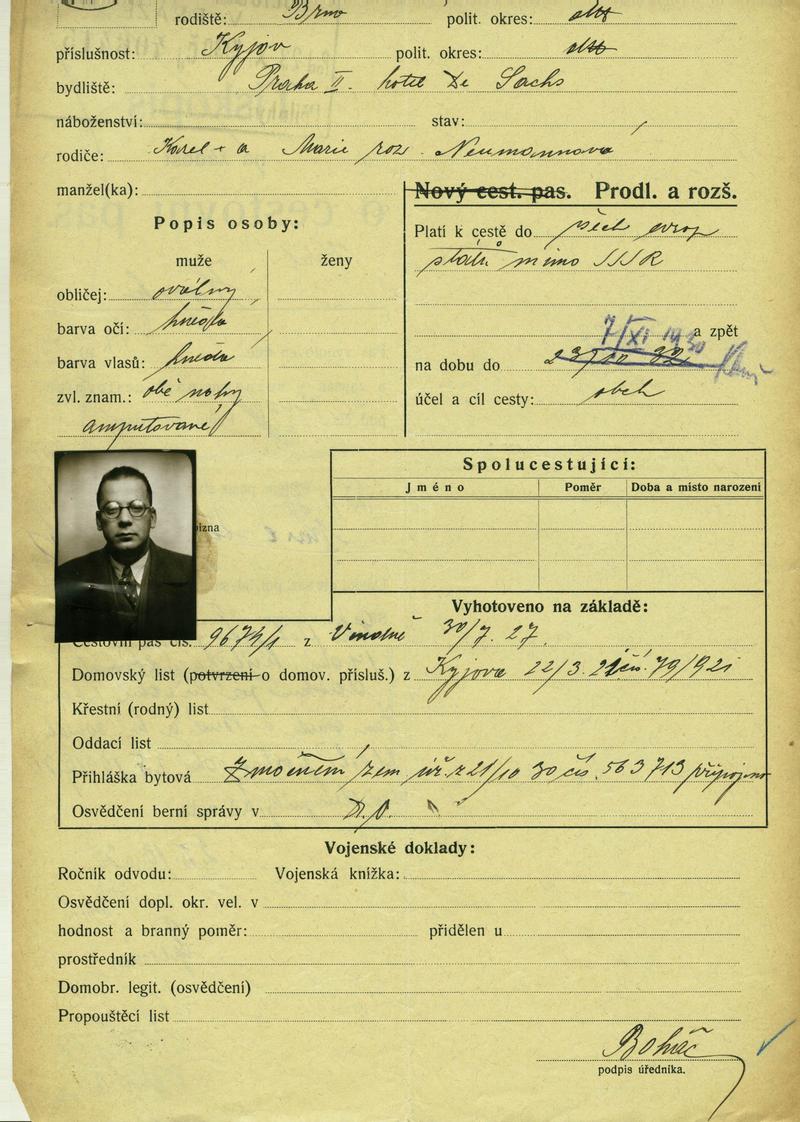 rodiště: Brno polit. okres:
příslušnost: Kyjov polit. okres:
bydliště: Praha II. hotel De Sachs
náboženství: stav:
rodiče: Karel + a Marie roz. Neumannová
manžel(ka):
Nový cest. pas. Prodl. a rozš.
Popis osoby:
muže ženy
obličej: oválný
barva očí: hnědá
barva vlasů: hnědá
zvl. znam.: obě nohy
amputované
Platí k cestě do všech evrop
států mimo SSSR
7/XI 1930 a zpět
na dobu do
účel a cíl cesty: obch
Spolucestující:
Jméno Poměr Doba a místo narození
izna
Vyhotoveno na základě:
Cestovní pas čís. 9674/1 z 30/7. 27.
Domovský list (potvrzení o domov. přísluš.) z Kyjova 22/3. 21 čís. 79/921
Křestní (rodný) list
Oddací list
Přihláška bytová Zmocnění zem úř. z 21/10 30 čís. 563713 připojeno
Osvědčení berní správy v
Vojenské doklady:
Ročník odvodu: Vojenská knížka:
Osvědčení dopl. okr. vel. v
hodnost a branný poměr: přidělen u
prostředník
Domobr. legit. (osvědčení)
Propouštěcí list
Boháč
podpis úředníka.